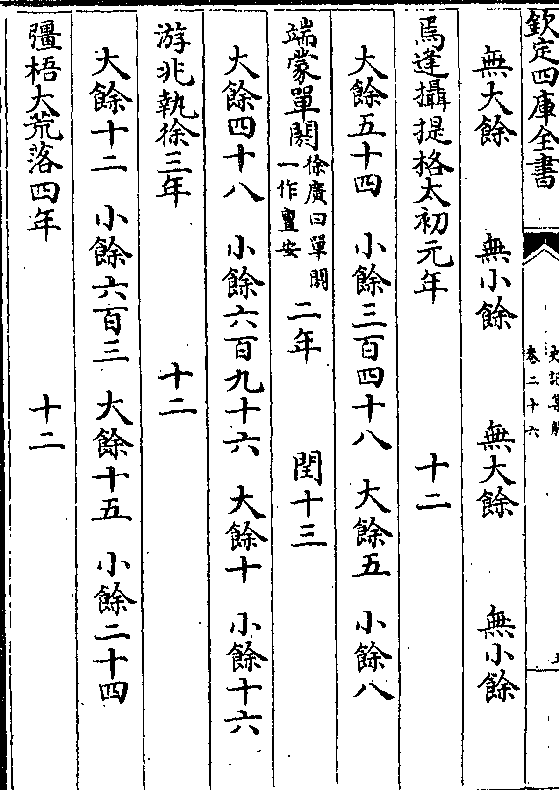 欽定四庫全書
史記集解
卷二十六
無大餘 無小餘 無大餘 無小餘
焉逢攝提格太初元年 十二
大餘五十四 小餘三百四十八 大餘五 小餘八
端蒙單閼徐廣曰單閼一作亶安二年 閏十三
大餘四十八 小餘六百九十六 大餘十 小餘十六
游兆執徐三年 十二
大餘十二 小餘六百三 大餘十五 小餘二十四
彊梧大荒落四年 十二